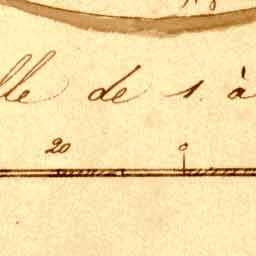 lle de 1 à
20 0